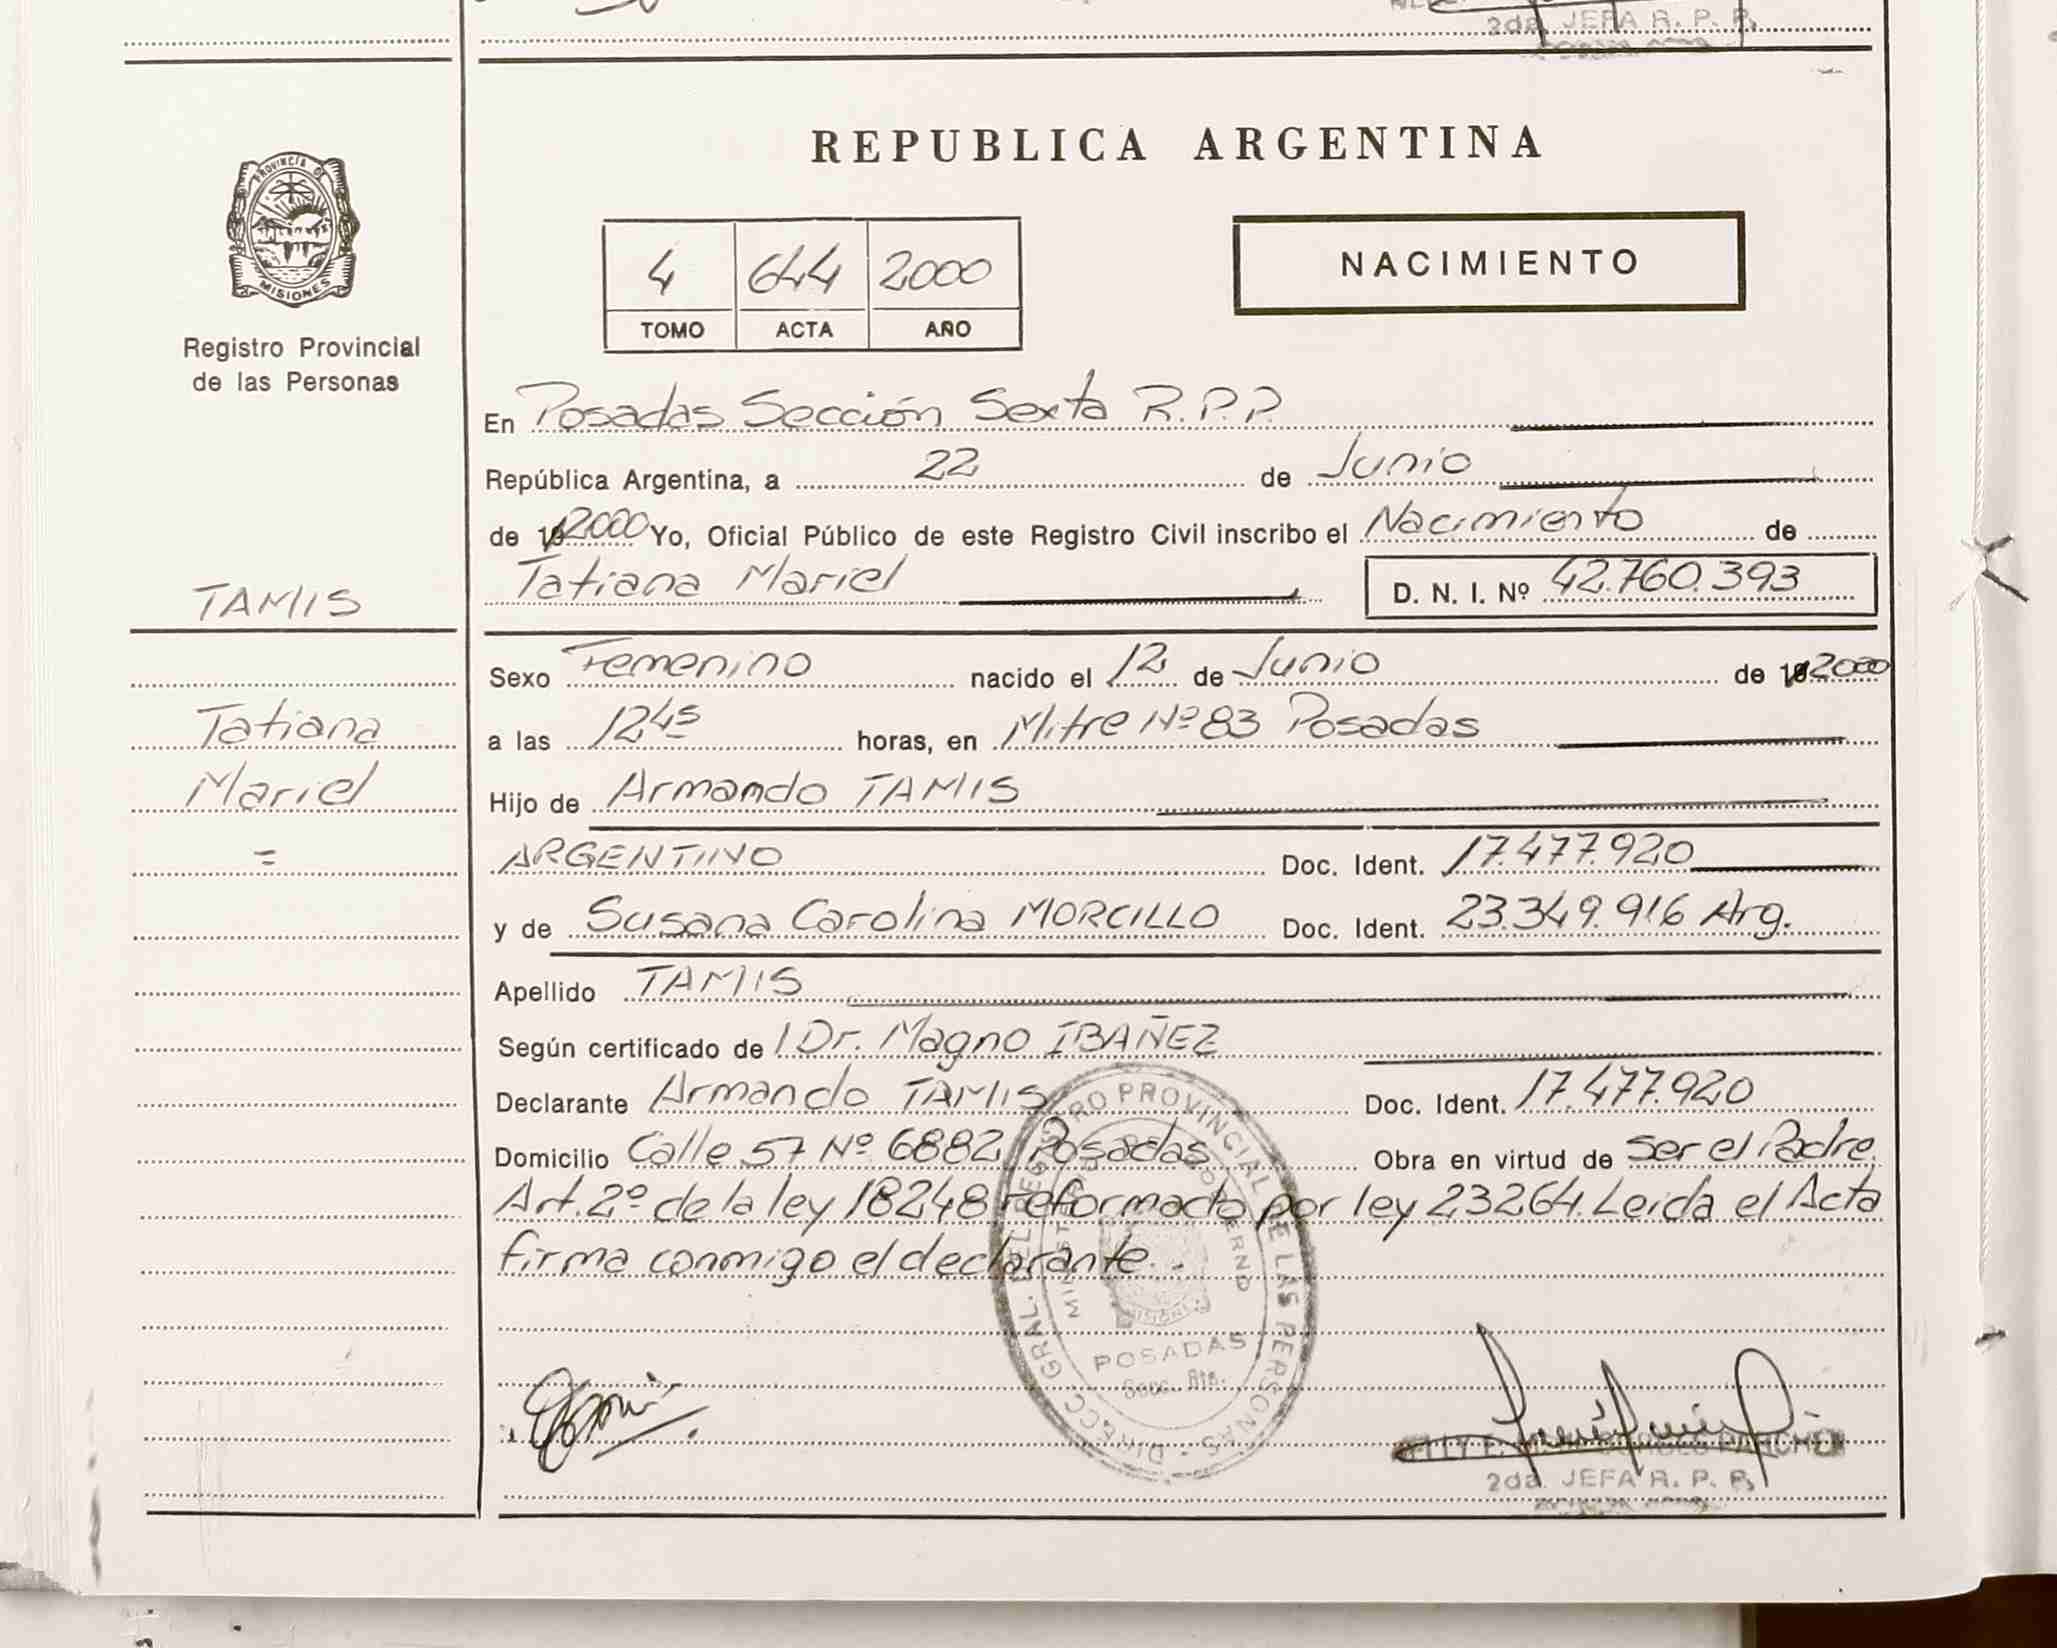 2da. JEFA R. P. P.
REPUBLICA ARGENTINA
PROVINCIA DE
MISIONES
Registro Provincial
de las Personas
4 644 2000
TOMO ACTA AÑO
NACIMIENTO
En Posadas Sección Sexta R.P.P.
República Argentina, a 22 de Junio
de 19 2000 Yo, Oficial Público de este Registro Civil inscribo el Nacimiento de
Tatiana Mariel D. N. I. Nº 42.760.393
TAMIS
Tatiana
Mariel
=
Sexo Femenino nacido el 12 de Junio de 19 2000
a las 12 45 horas, en Mitre Nº 83 Posadas
Hijo de Armando TAMIS
ARGENTINO Doc. Ident. 17.477.920
y de Susana Carolina MORCILLO Doc. Ident. 23.349.916 Arg.
Apellido TAMIS
Según certificado de l Dr. Magno IBAÑEZ
Declarante Armando TAMIS Doc. Ident. 17.477.920
Domicilio Calle 57 Nº 6882 Posadas Obra en virtud de ser el Padre.
Art. 2º de la ley 18248 reformado por ley 23264. Leida el Acta
firma conmigo el declarante.
DIRECC. GRAL. DEL REGISTRO PROVINCIAL DE LAS PERSONAS
MISIONES
POSADAS
Secc.
2da. JEFA R. P. P.